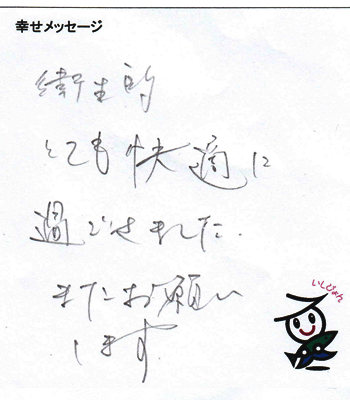 幸せメッセージ
衛生的
とても快適に
過ごせました.
またお願い
します.
いしぴょん